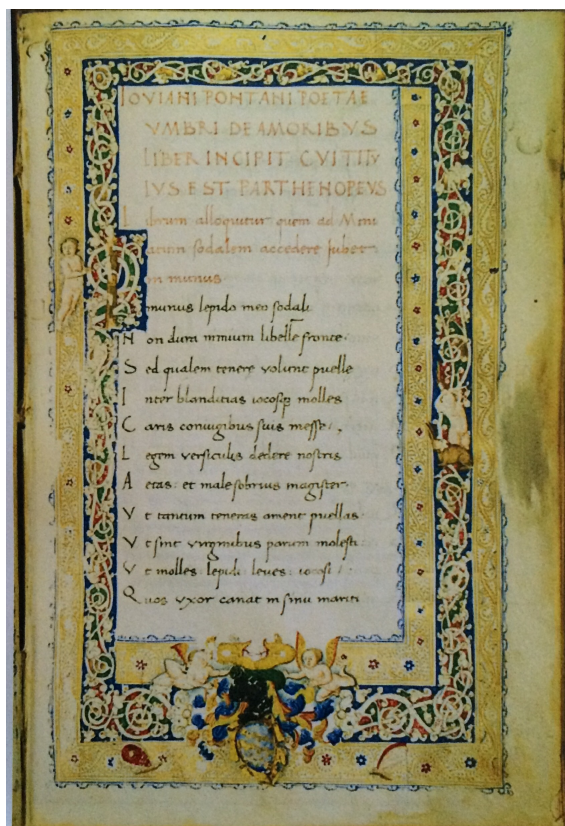 IOVIANI PONTANI POETAE
VMBRI DE AMORIBVS
LIBER INCIPIT CVI TITV
IVS EST PARTHENOPEVS
Librum alloquitur quem ad
sodalem accedere iubet
in munus
munus lepido meo sodali
Non dura nimium libelle fronte
Sed qualem tenere volunt puelle
Inter blanditias iocosqȝ molles
Caris coniugibus suis
Legem versiculis dedere nostris
Aetas: et male sobrius magister
Vt tantum teneras ament puellas
Vt sint virginibus parum molesti
Vt molles lepidi leves: iocosi
Quos vxor canat in sinu mariti